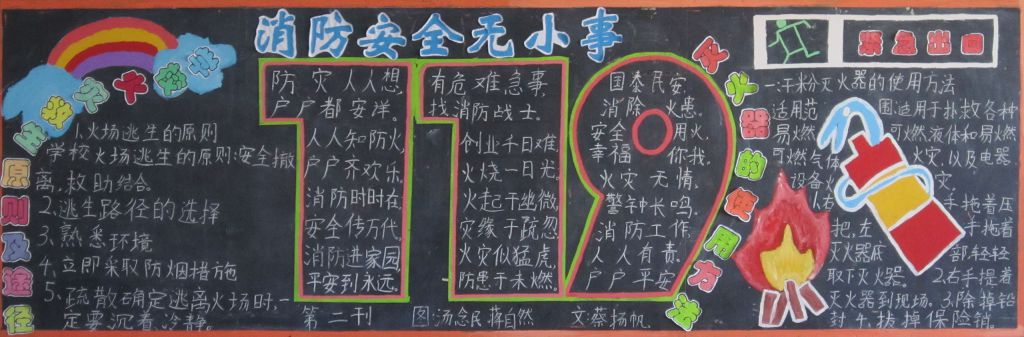 消防安全无小事
火灾
生原则及途径
1.火场逃生的原则
学校火场逃生的原则:安全撤
离,救助结合。
2.逃生路径的选择
3、熟悉环境
4.立即采取防烟措施
5、疏散确定逃离火场时,一
定要沉着、冷静。
防灾人人想,
户户都安洋。
人人知防火,
户户齐欢乐。
消防时时在,
安全传万代。
消防进家园,
平安到永远。
有危难急事,
找消防战士。
创业千日难,
火烧一日光。
火起于坐微,
灾缘于疏忽。
火灾似猛虎,
防患于未燃。
国泰民安,
消除火患。
安全用火,
幸福你我。
火灾无情,
警钟长鸣。
消防工作,
人人有责。
户户平安
第二刊 图:汤念民蒋自然 文:蔡扬帆
灭火器的使用方法
紧急出口
一:干粉灭火器的使用方法
适用范围:适用于扑救各种
易燃可燃液体和易燃
可燃气体火灾,以及电器
设备火灾。
1.右手拖着压
把,左手拖着
灭火器底部,轻轻
取下灭火器。2.右手提着
灭火器到现场。3.除掉铅
封 4、拔掉保险销。